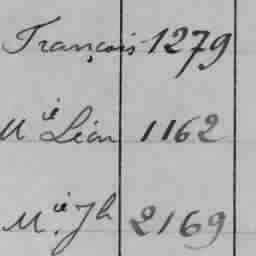 François 1279
Mie Léon 1162
Mie Jh 2169